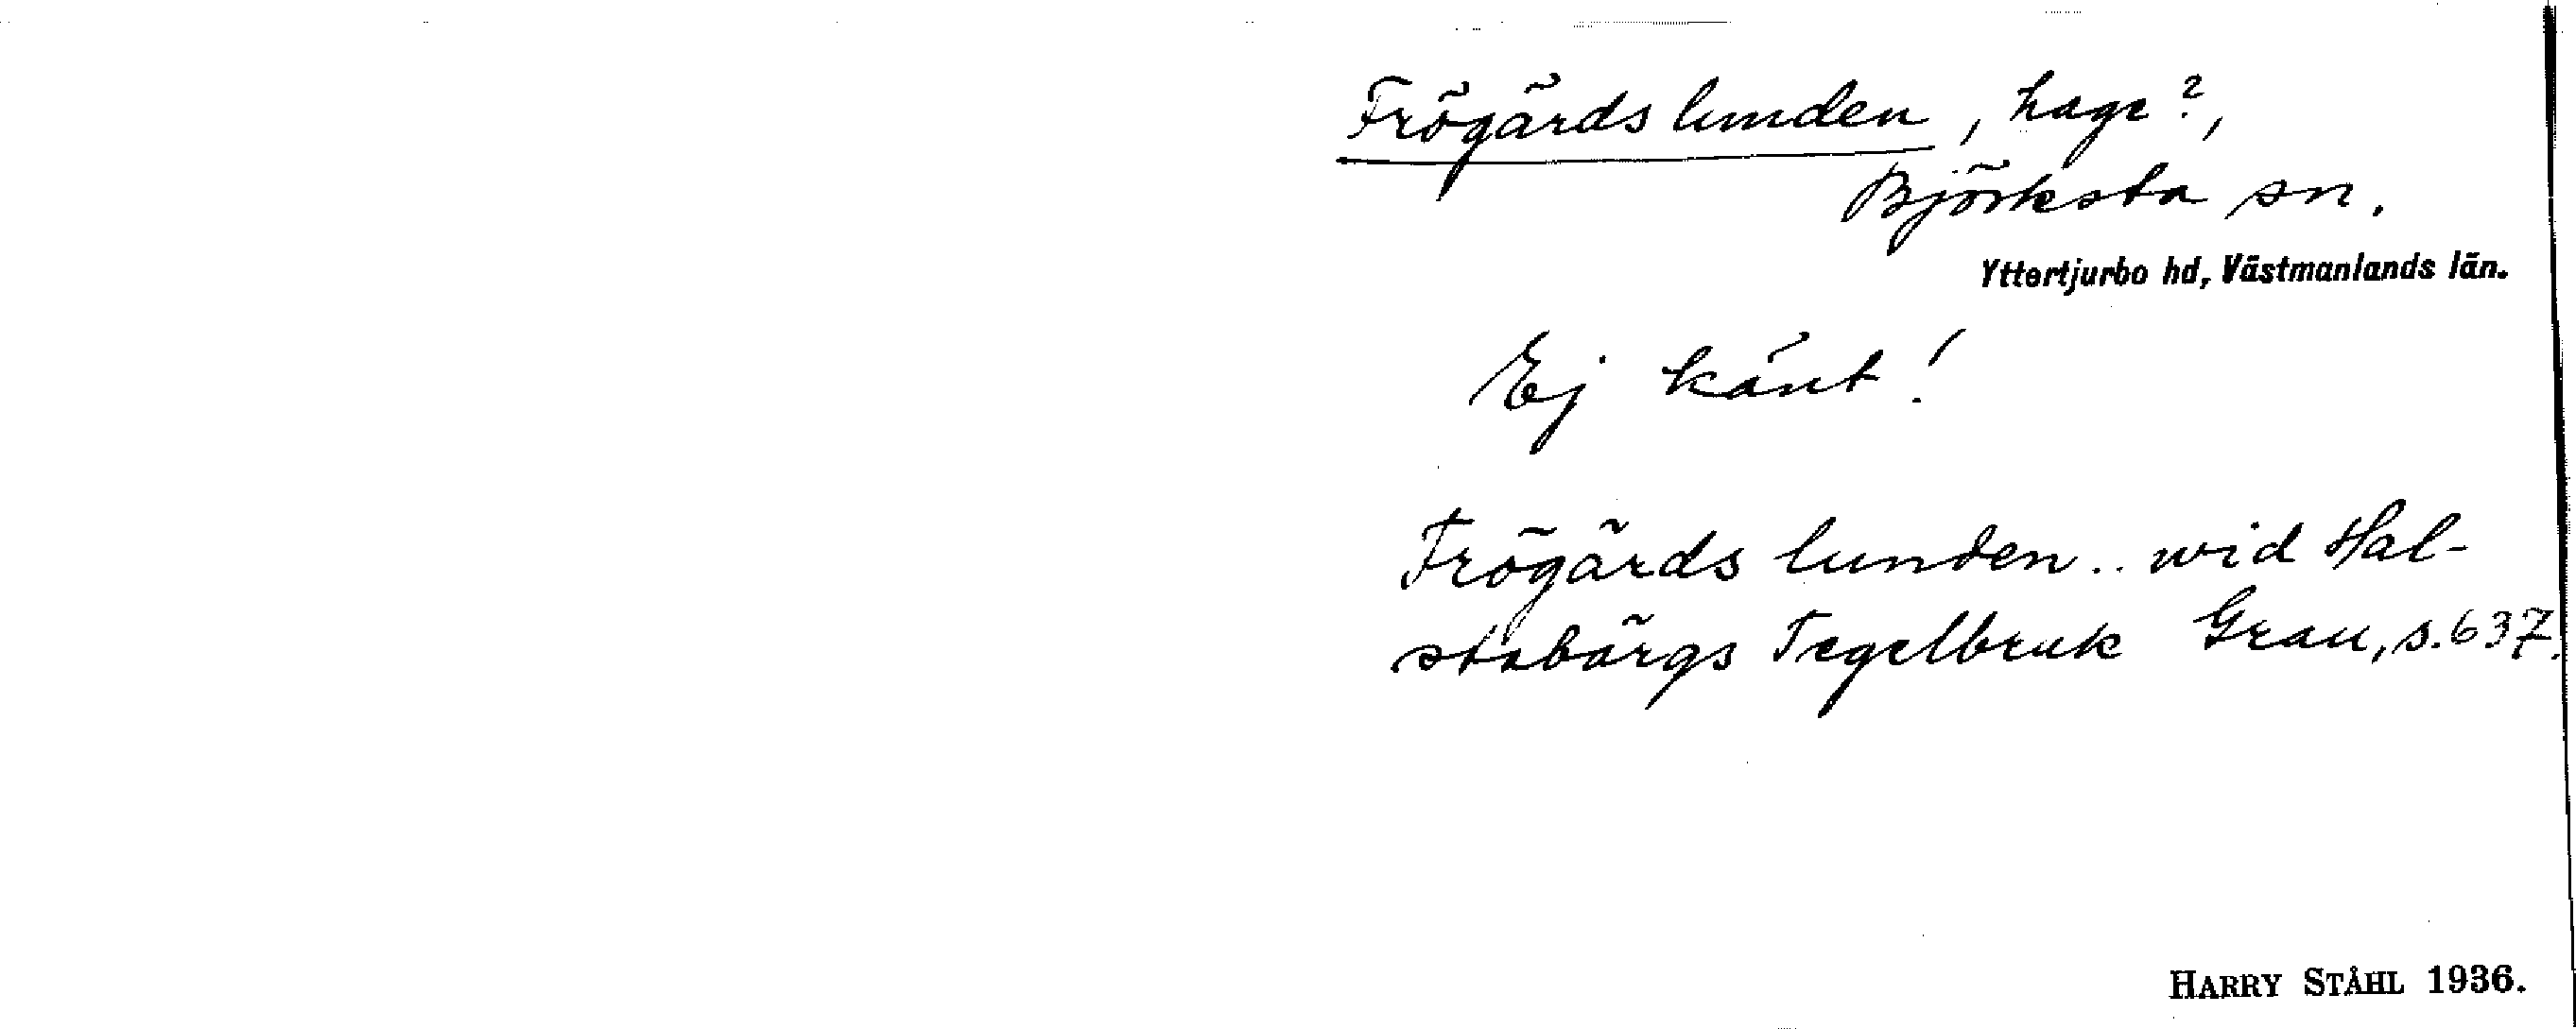 Frögärds lunden, hage?,
Björksta sn.
Yttertjurbo hd, Västmanlands län.
Ej känt!
Frögärds lunden.. wid Hal-
stabärgs Tegelbruk Grau, s. 637.
HARRY STÅHL 1936.